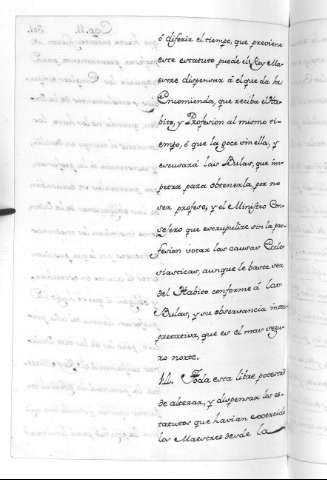 ó diferir el tiempo, que previene
este estatuto puede el Rey Mae
stre dispensar á el que da la
Encomienda, que reciba el Ha
bito, y Profesion al mismo ti-
empo, ó que la goce sin ella, y
escusará las Bulas, que im-
petra para obtenerla, por no
ser profeso, y el Ministro Con
sejero que escrupulize sin la pro
fesion votar las causas Ecle
siasticas, aunque le baste ser
del Habito conforme á las
Bulas, y su observancia inter
pretativa, que es el mas segu
ro norte.
14. Toda esta libre potestad
de alterar, y dispensar los es-
tatutos que havian exercido
los Maestres desde la